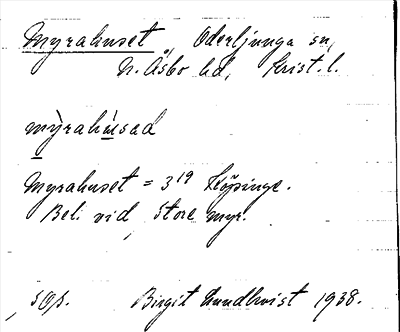 Myrahuset, Oderljunga sn,
N. Åsbo hd, Krist. l.
mỳrahúsad
Myrahuset = 3¹⁹ Höjsinge.
Bel. vid Store myr.
50/. Birgit Lundkvist 1938.